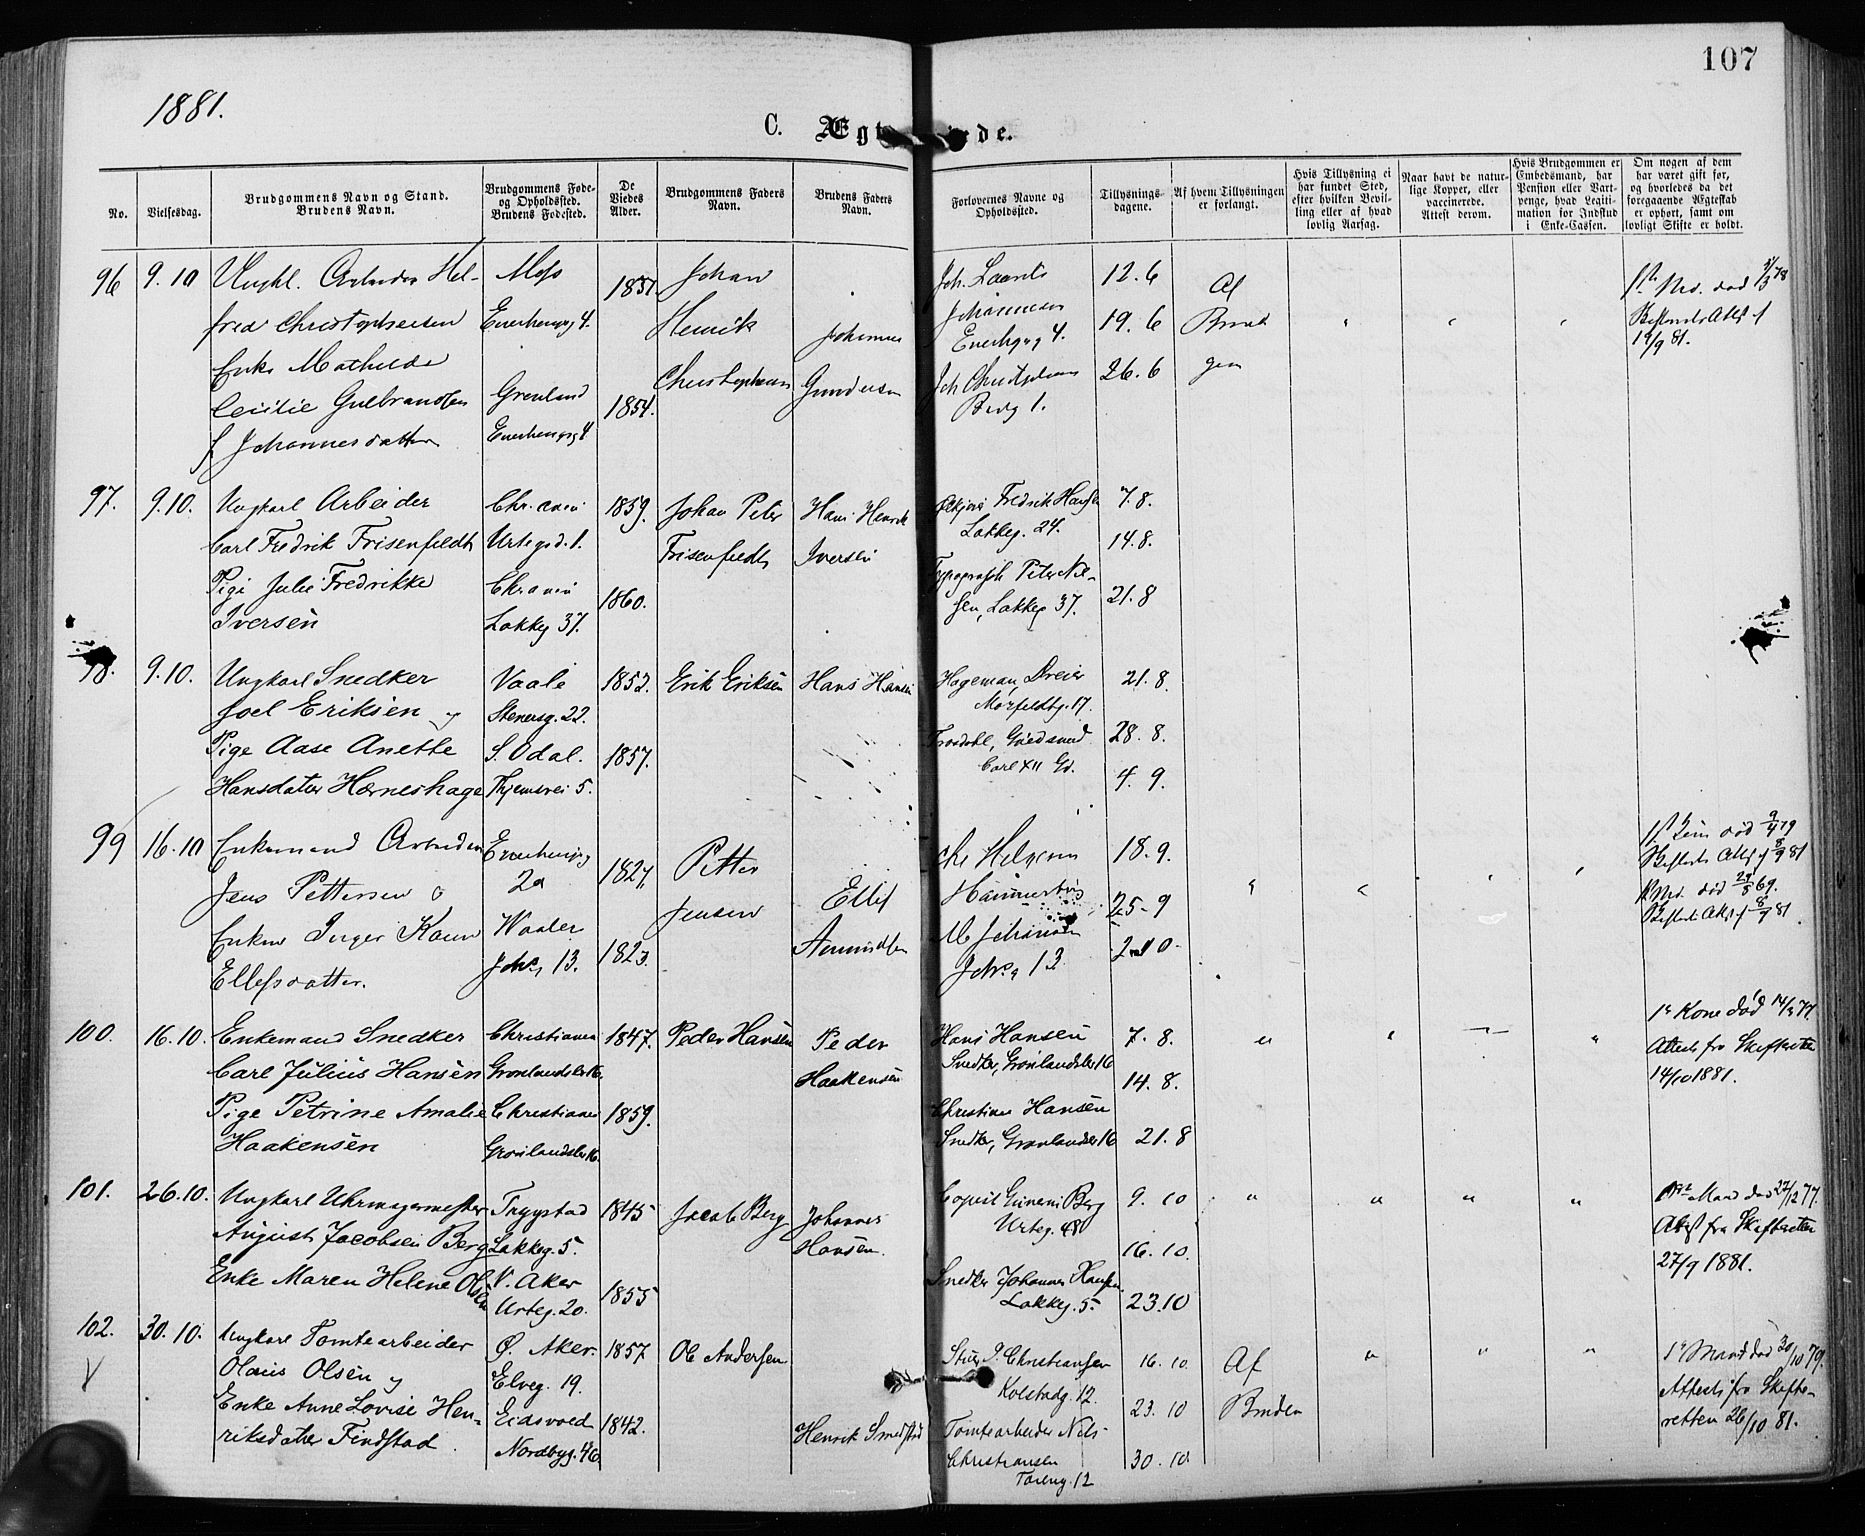 107
1881.
C. Ægt iede.
No.
Vielsesdag.
Brudgommens Navn og Stand.
Brudens Navn.
Brudgommens Føde-
og Opholdssted.
Brudens Fødested.
De
Viedes
Alder.
Brudgommens Faders
Navn.
Brudens Faders
Navn.
Forlovernes Navne og
Opholdssted.
Tillysnings-
dagene.
Af hvem Tillysningen
er forlangt.
Hvis Tillysning ei
har fundet Sted,
efter hvilken Bevil-
ling eller af hvad
lovlig Aarsag.
Naar havt de natur-
lige Kopper, eller
vaccinerede.
Attest derom.
Hvis Brudgommen er
Embedsmand, har
Pension eller Vart-
penge, hvad Legiti-
mation for Indskud
i Enke-Cassen.
Om nogen af dem
har været gift før,
og hvorledes da det
foregaaende Ægteskab
er ophørt, samt om
lovligt Skifte er holdt.
96 9.10
Ungkl. Arbeider Hel-
fred Christophersen
Enke Mathilde
Cecilie Gulbrandsen
f Johannesdatter
Moss
4.
Grenland
4
1854.
Johan
Henrik
Christophersen
Johannes
Gundersen
Johannesen
4.
1.
12.6
19.6
26.6
Af
Brud
gom
97. 9.10.
Ungkarl Arbeider
Carl Fredrik Frisenfeldt
Pige Julie Fredrikke
Iversen
Chr.ania
Urtegd. 1.
Chrania
Lakkeg 37.
1859.
1860.
Johan Peter
Frisenfeldt
Hans Henrik
Iversen
Fredrik Hansen
Lakkeg. 24.
Typograph Peter Niel-
sen, Lakkeg 37.
7.8.
14.8.
21.8
98. 9.10.
Ungkarl Snedker
Joel Eriksen og
Pige Aase Anette
Hansdatter Hærneshage
Vaale
Stenersg. 22.
S. Odal.
5.
1852.
1857.
Erik Eriksen
Hans Hansen
Hageman, Dreier
17.
Carl XII Gd.
21.8.
28.8.
4.9.
99 16.10
Enkemand Arbeider
Jens Pettersen o
Enken Inger Karen
Ellefsdatter.
2a
Waaler
13.
1827.
1823.
Petter
Jensen
Ellef
Amundsen
Chr Helgesen
M Johansen
13
18.9.
25-9
2-10-
100. 16.10.
Enkemand Snedker
Carl Julius Hansen
Pige Petrine Amalie
Haakensen
Christiania
Grønlandsler 16.
Christiania
Grønlandsler 16.
1847.
1859.
Peder Hansen
Peder
Haakensen
Hans Hansen
Snedker, Grønlandsler 16
Christian Hansen
Snedker, Grønlandsler 16
7.8.
14.8.
21.8
1e Kone død
Attest fra Skifteretten
14/10 1881.
101. 26.10.
Ungkarl Uhrmagermester
August Jacobsen Berg
Enke Maren Helene Olsen
Trygstad
Lakkeg. 5.
V. Aker
Urteg. 20.
1845
1855
Jacob Berg
Johannes
Hansen.
Berg
Urteg. 48
Snedker Johannes Hansen
Lakkeg. 5.
9.10
16.10.
23.10
Mand død 27/12 77.
Attest fra Skifteretten
27/9 1881.
102. 30.10.
V
Ungkarl Tomtearbeider
Olaus Olsen og
Enke Anne Lovise Hen-
riksdatter Findstad
Ø. Aker.
Elveg. 19.
Eidsvold
Nordbyg. 46
1857
1842.
Ole Andersen
Henrik Smedstad
Christiansen
Kolstadg. 12.
Tomtearbeider Nils
Christiansen
Tøieng. 12
16.10.
23.10
30.10.
Af
Bruden
1e Mand død 30/10 79.
Attest fra Skifte-
retten 26/10 81.